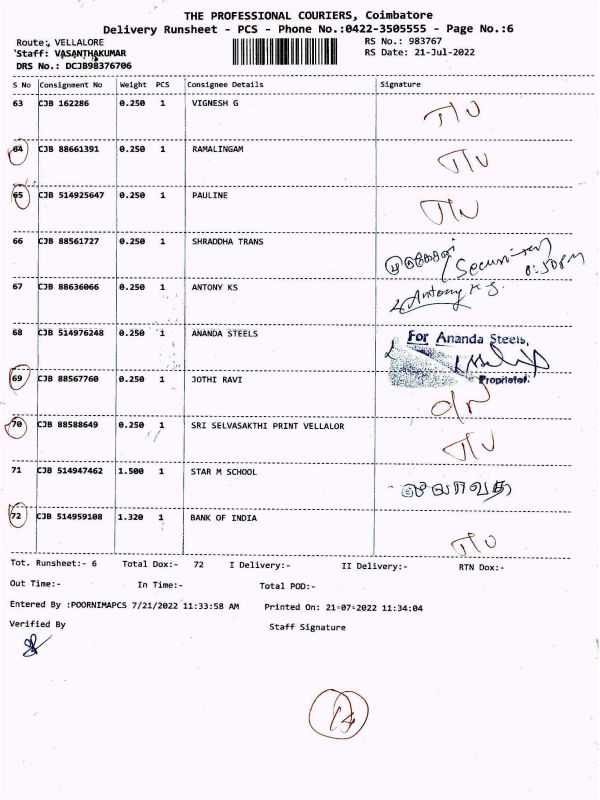 THE PROFESSIONAL COURIERS, Coimbatore
Delivery Runsheet - PCS - Phone No.:0422-3505555 - Page No.:6
Route: VELLALORE RS No.: 983767
Staff: VASANTHAKUMAR RS Date: 21-Jul-2022
DRS No.: DCJB98376706
S No Consignment No Weight PCS Consignee Details Signature
63 CJB 162286 0.250 1 VIGNESH G
64 CJB 88661391 0.250 1 RAMALINGAM
65 CJB 514925647 0.250 1 PAULINE
66 CJB 88561727 0.250 1 SHRADDHA TRANS
67 CJB 88636066 0.250 1 ANTONY KS Antony K S.
68 CJB 514976248 0.250 1 ANANDA STEELS For Ananda Steels,
Proprietor.
69 CJB 88567760 0.250 1 JOTHI RAVI
70 CJB 88588649 0.250 1 SRI SELVASAKTHI PRINT VELLALOR
71 CJB 514947462 1.500 1 STAR M SCHOOL
72 CJB 514959108 1.320 1 BANK OF INDIA
Tot. Runsheet:- 6 Total Dox:- 72 I Delivery:- II Delivery:- RTN Dox:-
Out Time:- In Time:- Total POD:-
Entered By :POORNIMAPCS 7/21/2022 11:33:58 AM Printed On: 21-07-2022 11:34:04
Verified By Staff Signature